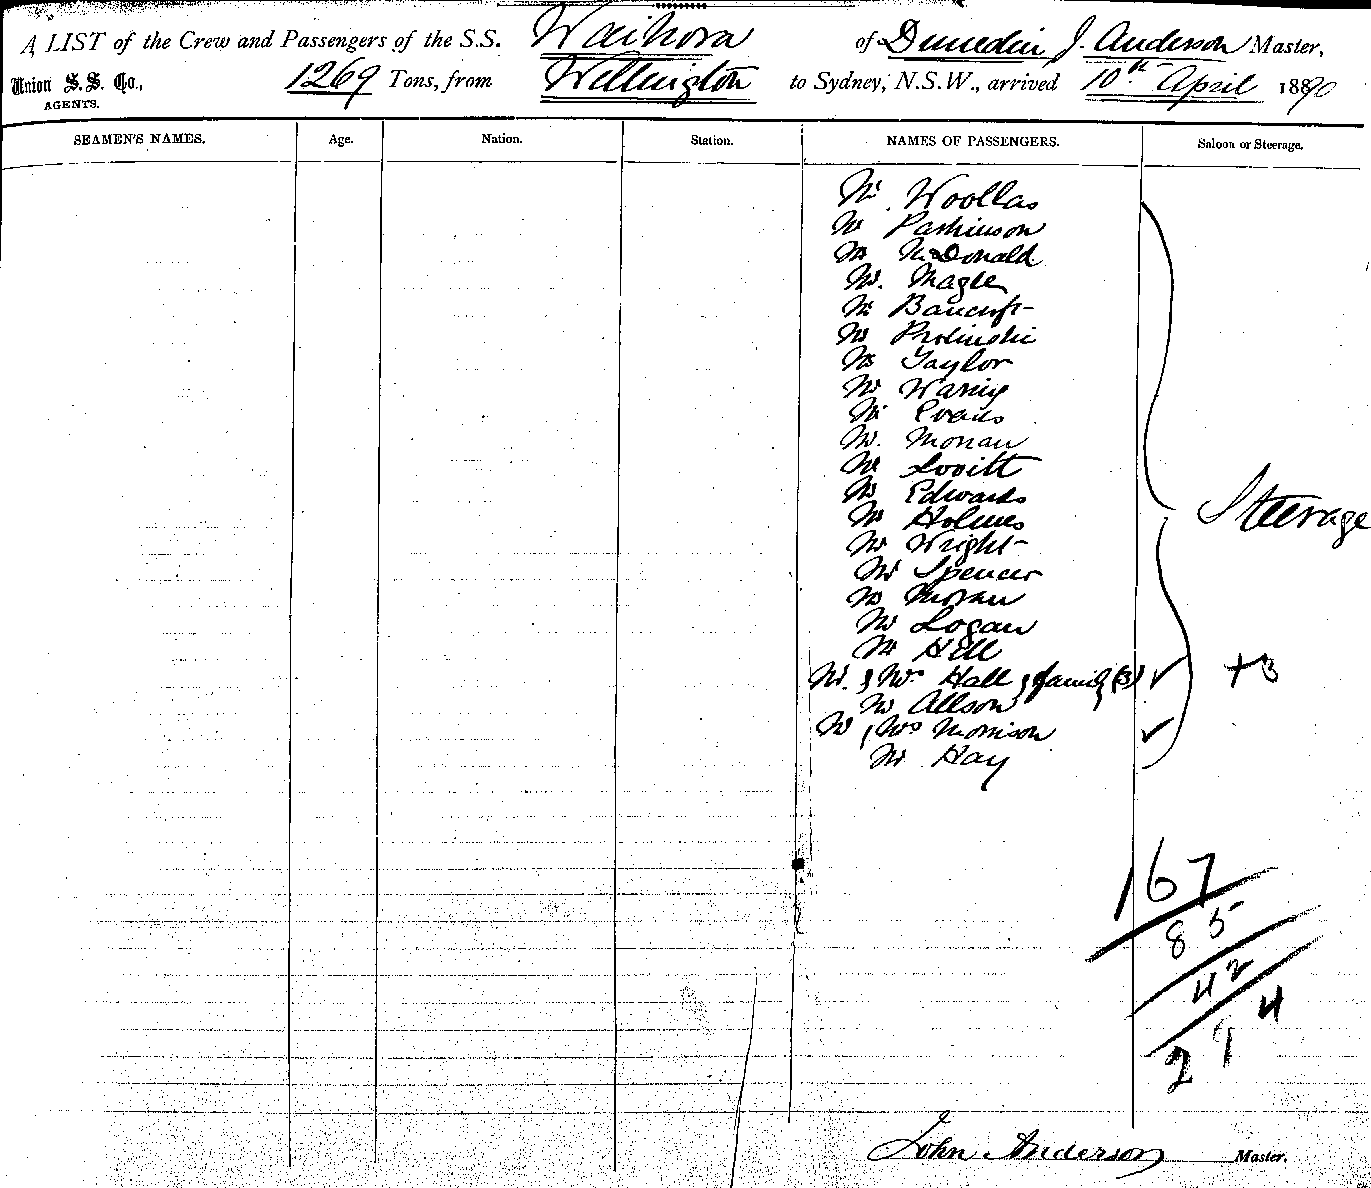 A LIST of the Crew and Passengers of the S.S. Waihora of Dunedin J. Anderson Master,
Union S.S. Co., 1269 Tons, from Wellington to Sydney, N.S.W., arrived 10th April 1890
AGENTS.
SEAMEN'S NAMES. Age. Nation. Station. NAMES OF PASSENGERS. Saloon or Steerage.
Mr. Woollas
Mr Parkinson
Mr McDonald
Mr. Magee
Mr Bancroft
Mr Prolinski
Mr Taylor
Mr Waring
Mr Evans
Mr. Moran
Mr Lovitt
Mr Edwards
Mr Holmes
Steerage
Mr Wright
Mr Spencer
Mr Moran
Mr Logan
Mr Hill
Mr. & Mrs Hall & family (3) ✓ +3
Mr Allson
Mr & Mrs Morrison ✓
Mr Hay
167
85
42
4
2 9
John Anderson Master.